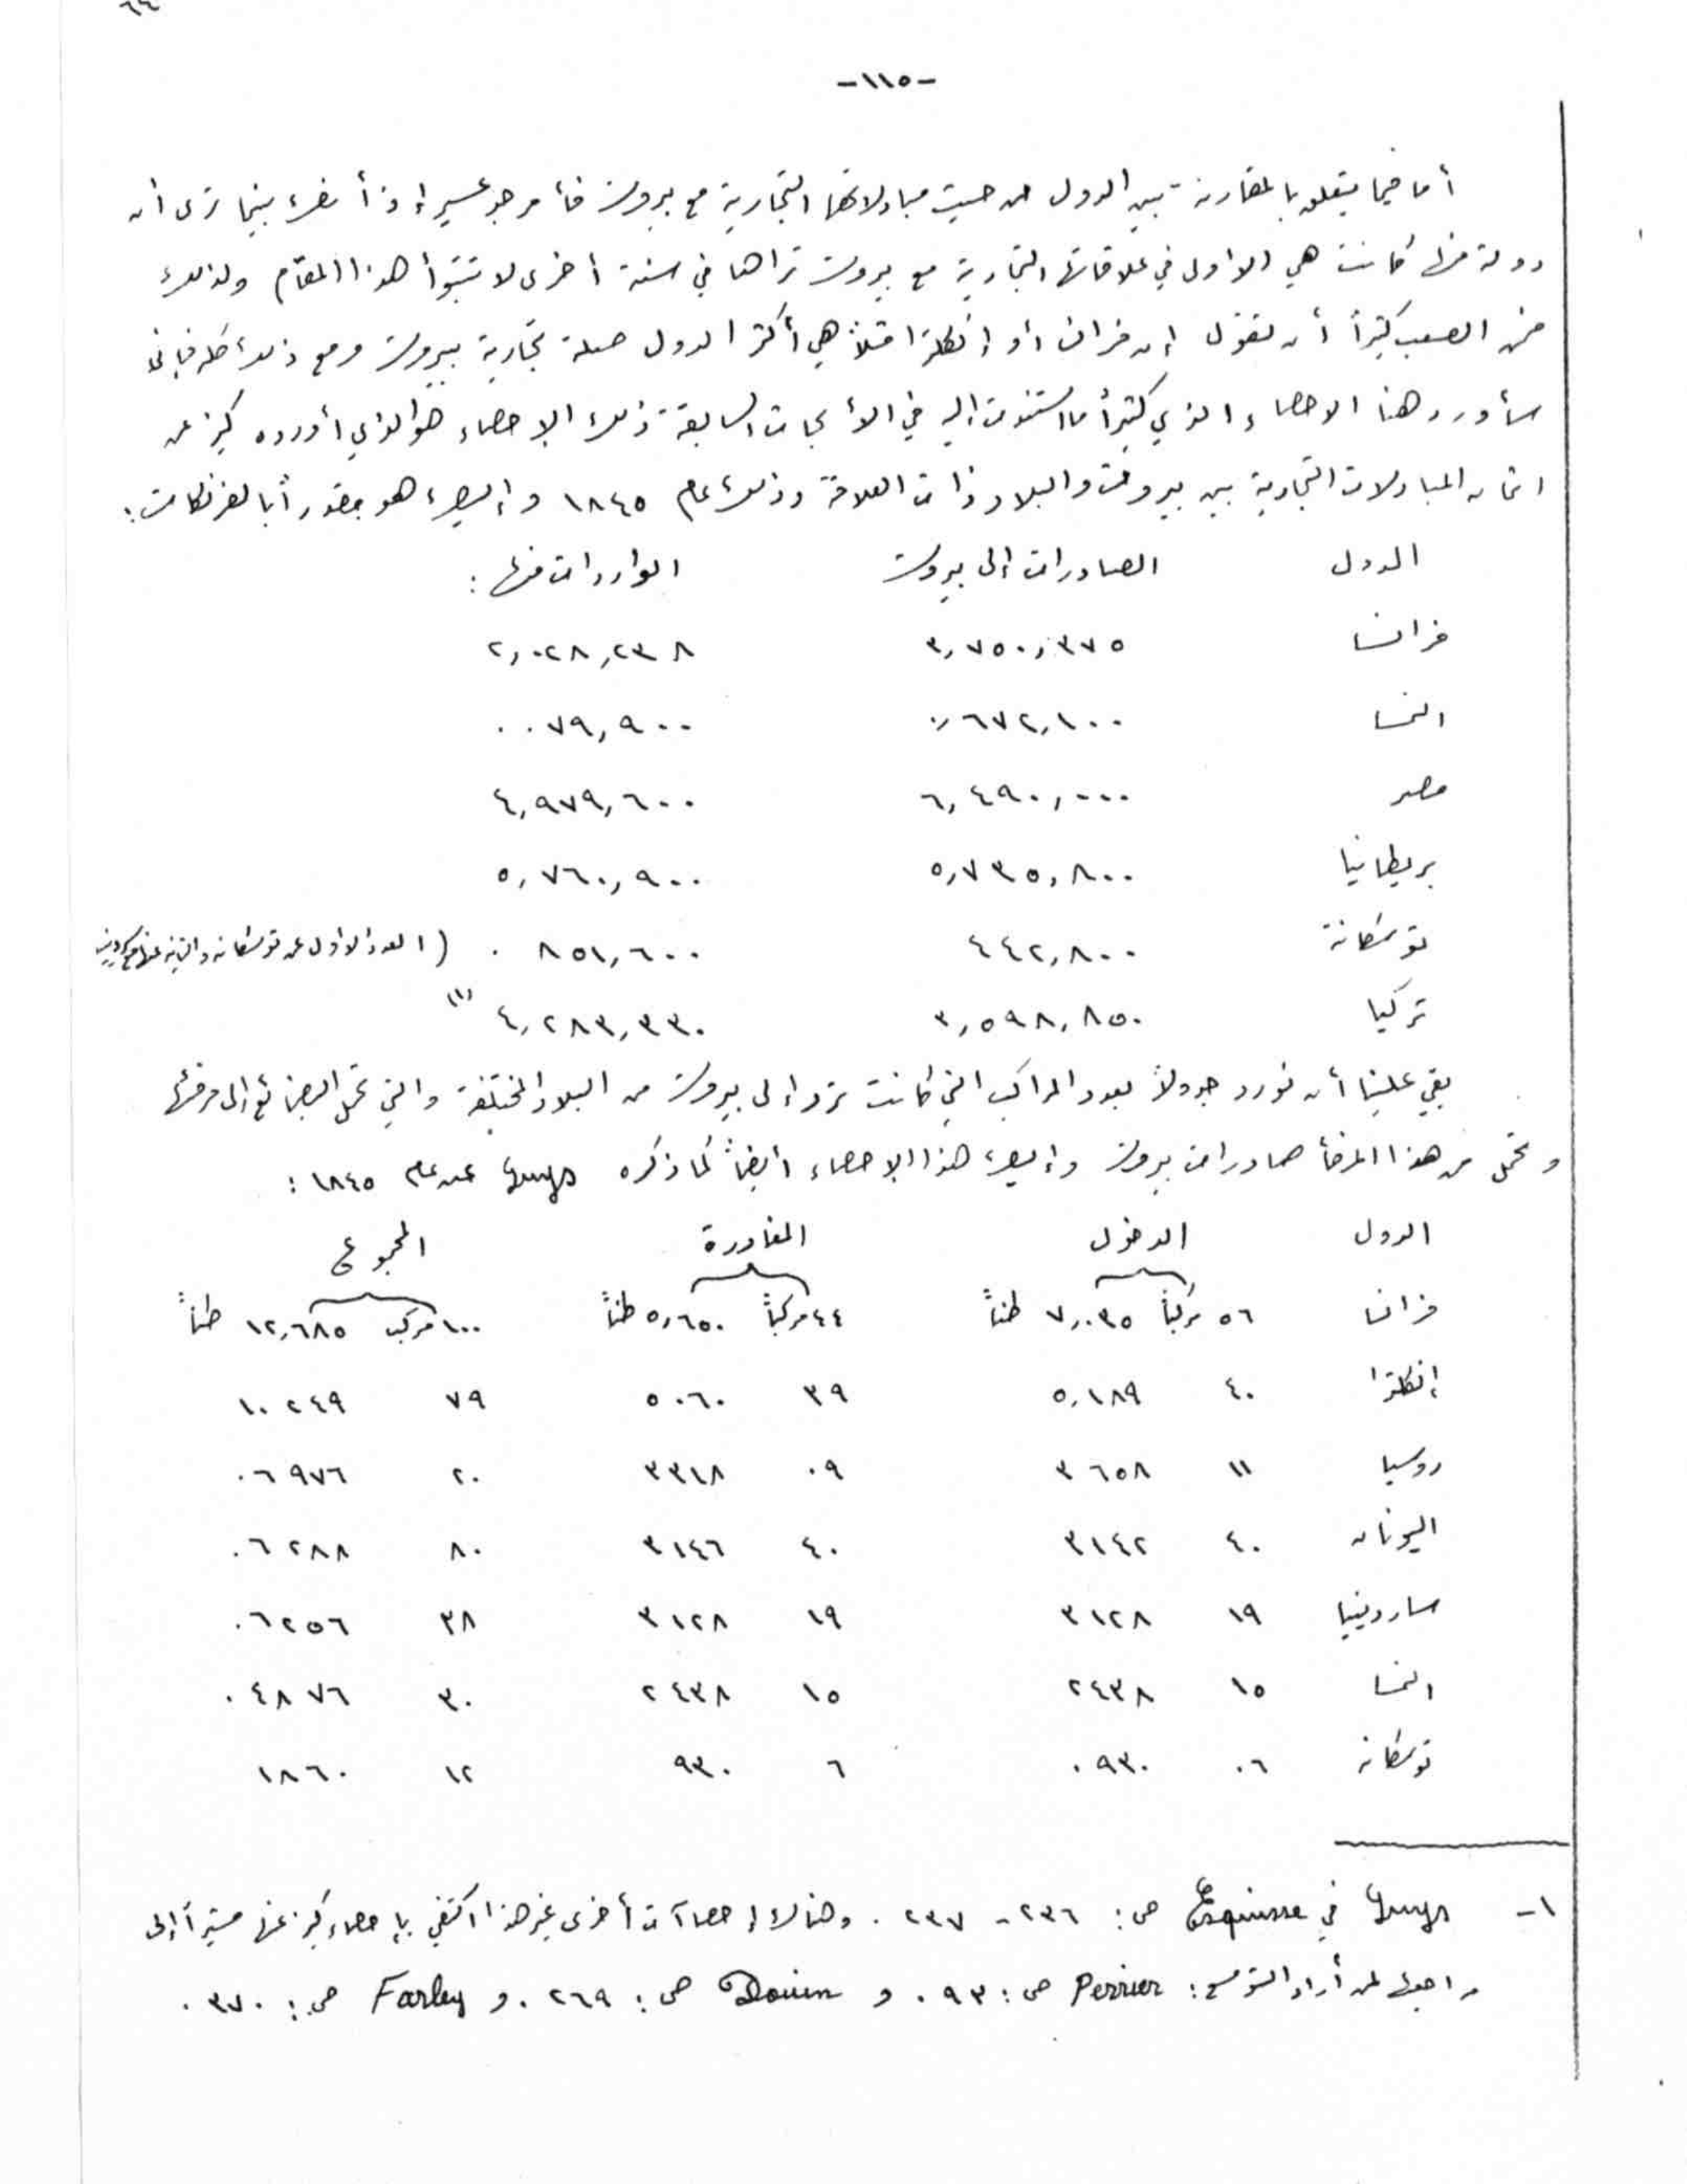 -١١٥-
أما فيما يتعلق بالمقارنة بين الدول من حيث مبادلاتها التجارية مع بيروت فأمر جد عسير إذ أنك بينما ترى أن
دولة منها كانت هي الأولى في علاقاتها التجارية مع بيروت تراها في سنة أخرى لا تتبوأ هذا المقام ولذلك
فمن الصعب كثيراً أن نقول إن فرانسا أو إنكلترا مثلاً هي أكثر الدول صلة تجارية ببيروت ومع ذلك كله فإني
سأورد هنا الاحصاء الذي كثيراً ما استندت إليه في الأبحاث السابقة ذلك الإحصاء هو الذي أورده كيز عن
اثمان المبادلات التجارية بين بيروت والبلاد ذات العلاقة وذلك عام ١٨٤٥ وإليك هو مقدراً بالفرنكات:
الدول الصادرات إلى بيروت الواردات منها:
فرانسا ٣,٧٥٠,٣٧٥ ٢,٠٢٨,٢٣٨
النمسا ٠,٦٧٢,١٠٠ ٠٠٧٩,٩٠٠
مصر ٦,٤٩٠,٠٠٠ ٤,٩٧٩,٦٠٠
بريطانيا ٥,٧٣٥,٨٠٠ ٥,٧٦٠,٩٠٠
توسكانة ٤٤٢,٨٠٠ ٠ ٨٥١,٦٠٠ (العدد الأول عن توسكانه والثاني عنها مع
تركيا ٣,٥٩٨,٨٥٠ ٤,٢٨٣,٣٣٠ (١)
بقي علينا أن نورد جدولاً بعدد المراكب التي كانت ترد إلى بيروت من البلاد المختلفة والتي تحمل البضائع إلى مرفئها
وتحمل من هذا المرفأ صادرات بيروت وإليك هذا الإحصاء أيضاً كما ذكره Guys عن عام ١٨٤٥:
الدول الدخول المغادرة المجموع
فرانسا ٥٦ مركباً ٧,٠٣٥ طناً ٤٤ مركباً ٥,٦٥٠ طناً ١٠٠ مركب ١٢,٦٨٥ طناً
إنكلترا ٤٠ ٥,١٨٩ ٣٩ ٥٠٦٠ ٧٩ ١٠٢٤٩
روسيا ١١ ٣٦٥٨ ٠٩ ٣٣١٨ ٢٠ ٠٦٩٧٦
اليونان ٤٠ ٣١٤٢ ٤٠ ٣١٤٦ ٨٠ ٠٦٢٨٨
ساردينيا ١٩ ٣١٢٨ ١٩ ٣١٢٨ ٣٨ ٠٦٢٥٦
النمسا ١٥ ٢٤٣٨ ١٥ ٢٤٣٨ ٣٠ ٠٤٨٧٦
توسكانه ٠٦ ٠٩٣٠ ٦ ٩٣٠ ١٢ ١٨٦٠
١- Guys في Esquisse ص: ٢٣٦-٢٣٧. وهنالك إحصاآت أخرى غير هذا اكتفي بإحصاء كيز عنها مشيراً إلى
مراجعها لمن أراد التوسع: Perrier ص: ٠٩٣ و Douin ص: ٢٦٩. و Farley ص: ٣٧٠.